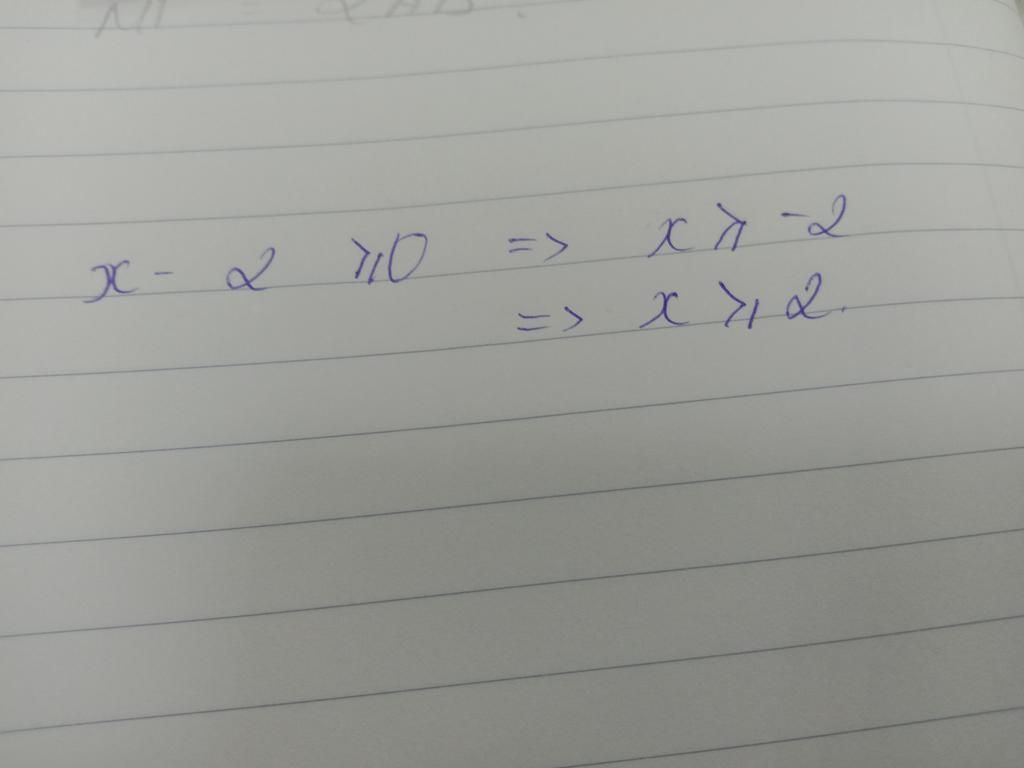 x - 2 ⩾ 0 => x ⩾ -2
=> x ⩾ 2.